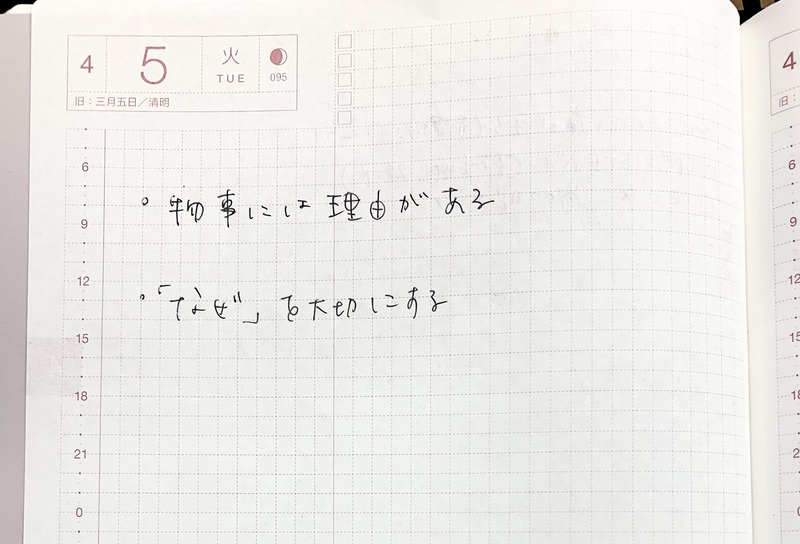 4 5 火 TUE 095
旧：三月五日／清明
6
。物事には理由がある
9
12
。「なぜ」を大切にする
15
18
21
0
4
旧：
6
9
12
15